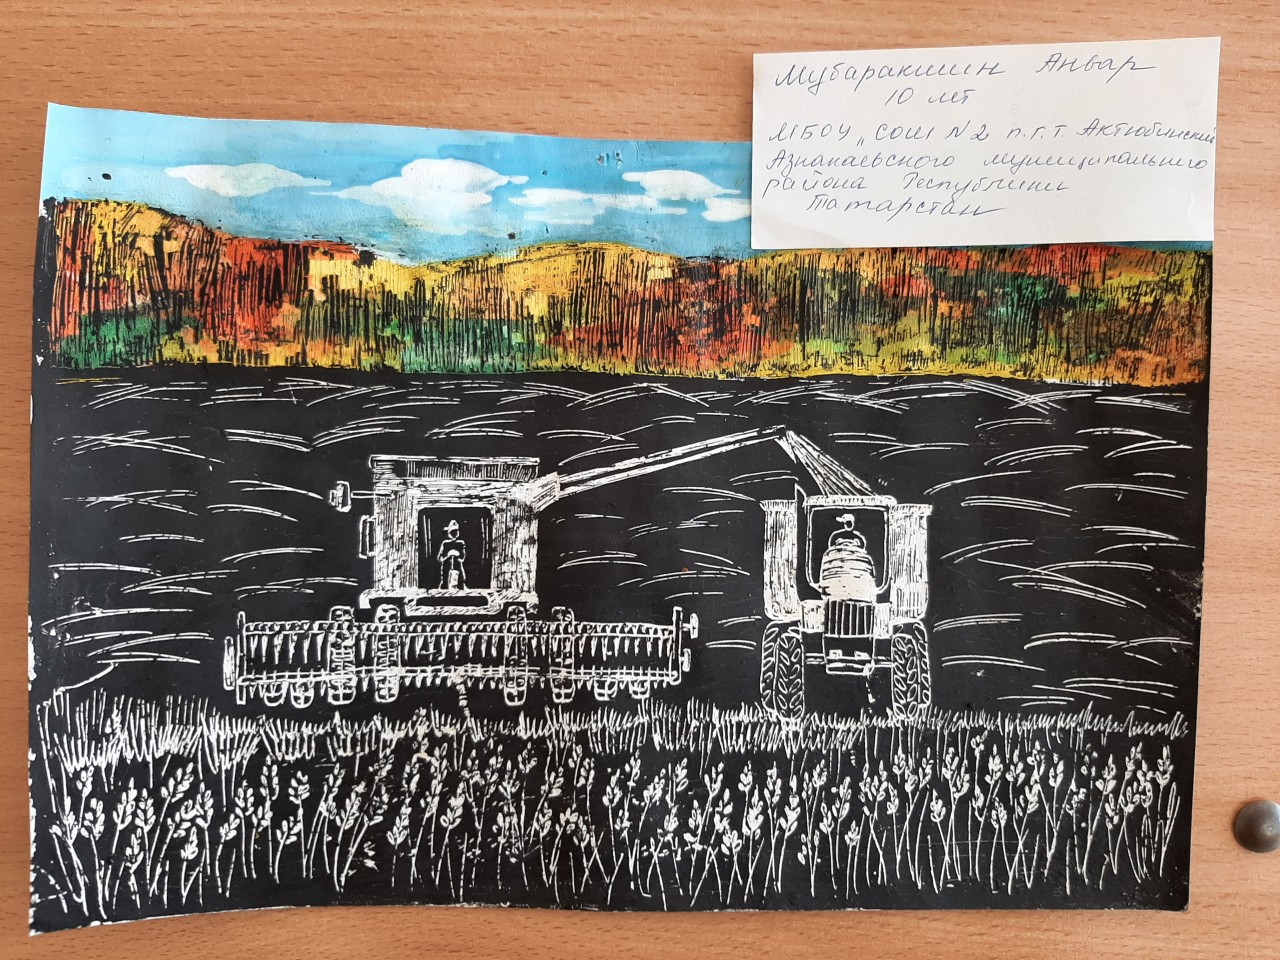 Мубаракшин Анвар
10 лет
МБОУ „СОШ №2 п.г.т. Актюбинский
Азнакаевского муниципального
района Республики
Татарстан